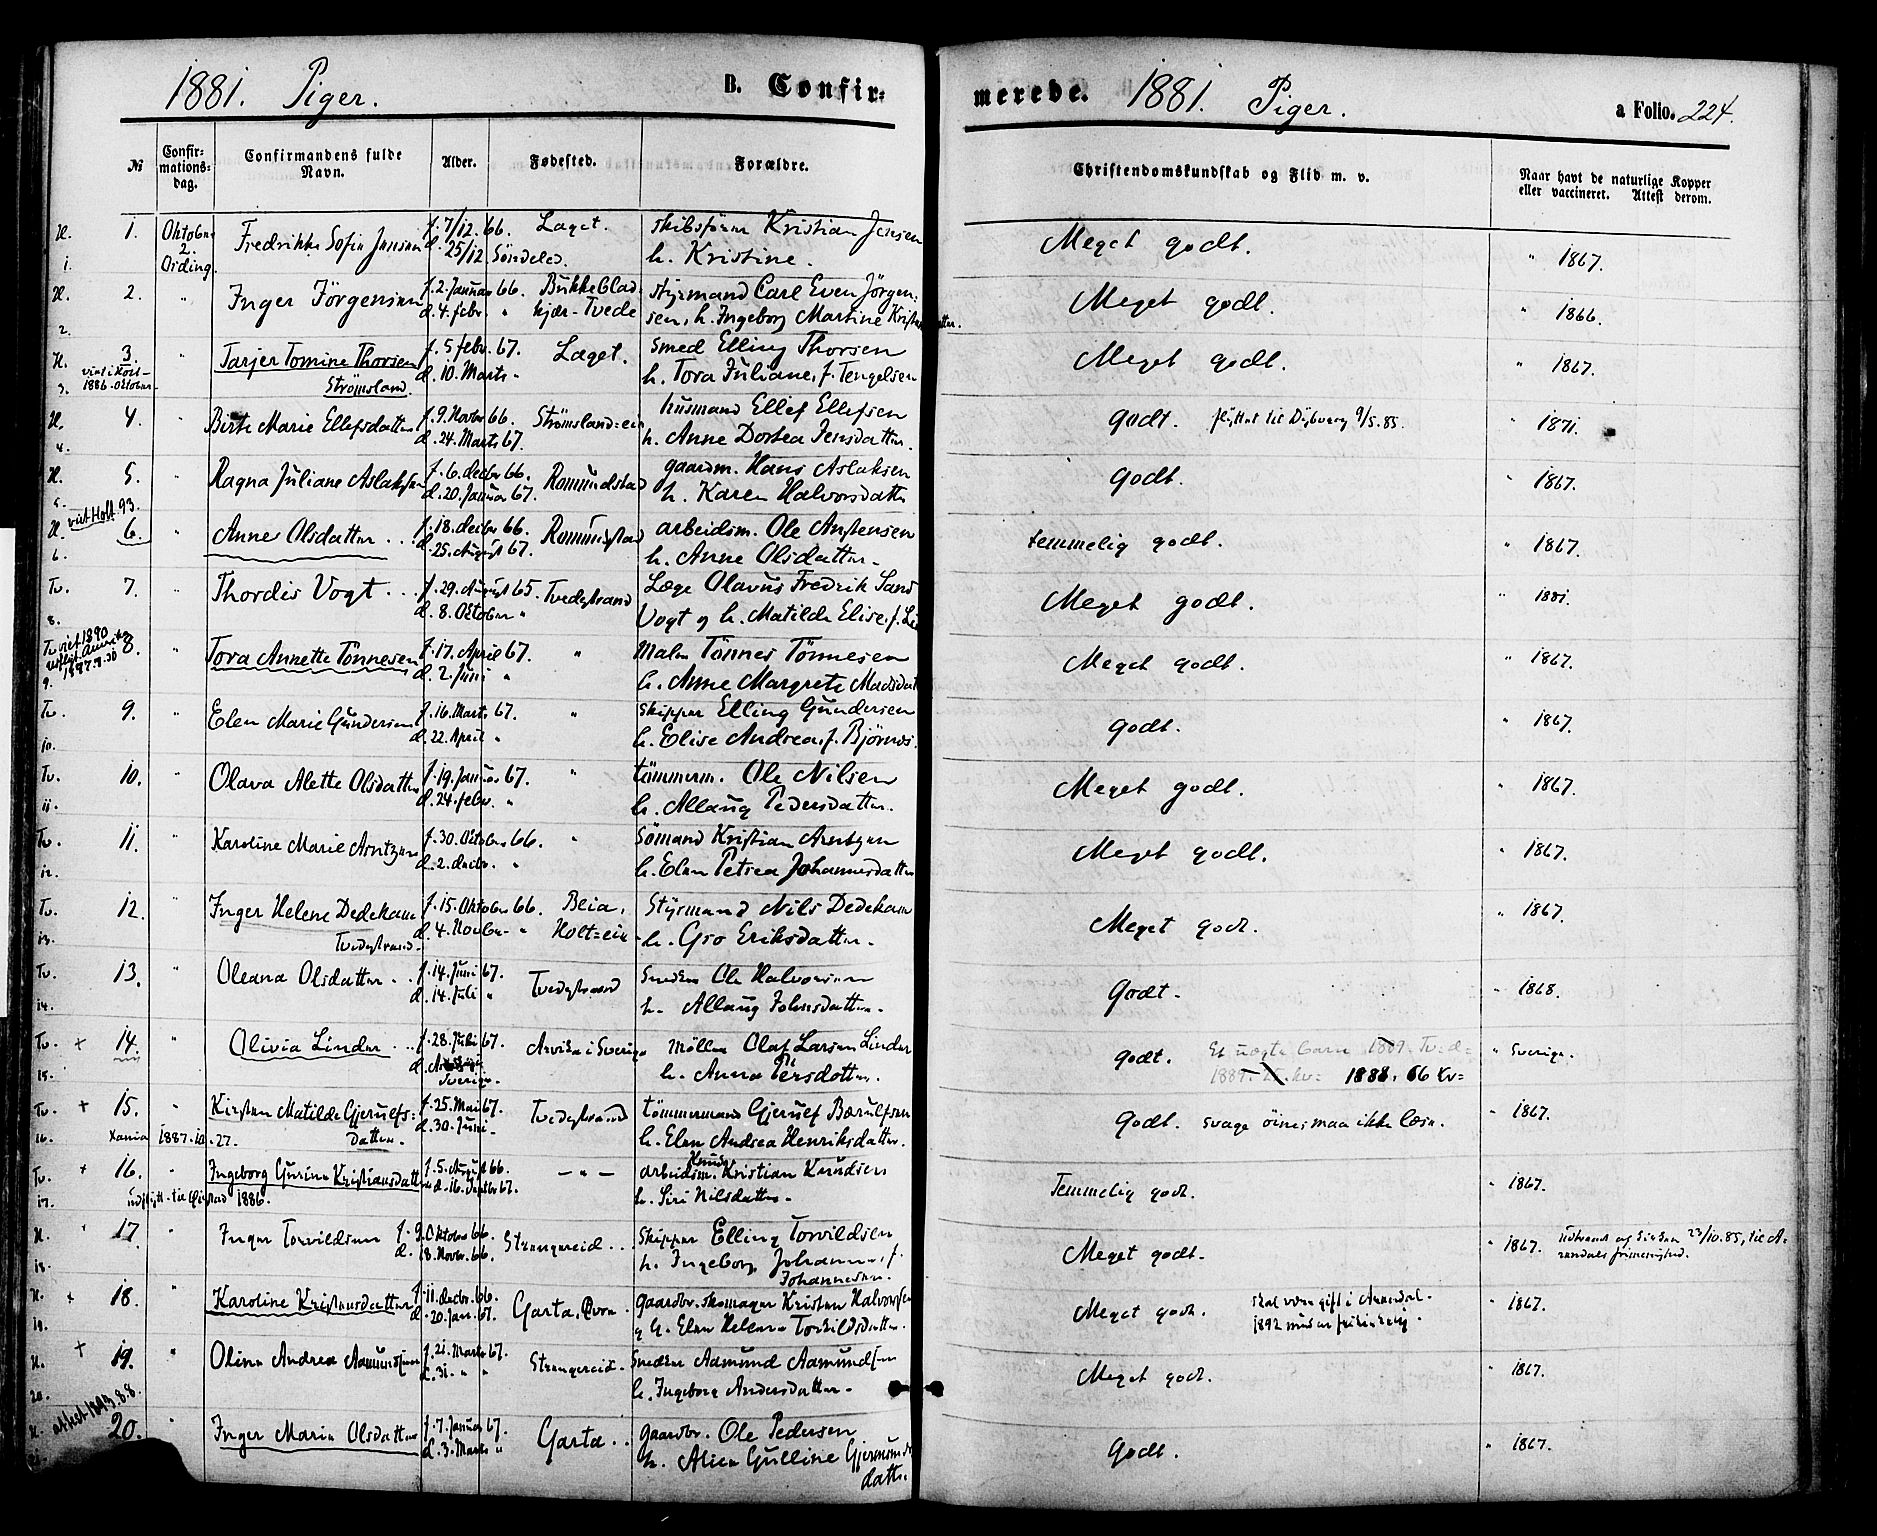 1881. Piger. B. Confir-
merede. 1881. Piger. a Folio. 224.
№ Confir-mations-dag. Confirmandens fulde Navn. Alder. Fødested. Forældre. Christendomskundskab og Flid m. v. Naar havt de naturlige Kopper eller vaccineret. Attest derom.
H. 1. Oktober Fredrikke Sofie Jensen f. 7/12. 66. Laget. skibsfører Kristian Jensen Meget godt. " 1867.
1. 2. d. 25/12 Söndeled. h. Kristine.
H. 2. " Inger Jörgensen f. 2. Januar 66. Bukkeblad- styrmand Carl Even Jörgen- Meget godt. " 1866.
2. d. 4. febr. " kjær - Tvede sen, h. Ingeborg Martine
H. 3. " Tarjer Tomine Thorsen f. 5 febr. 67. Laget. Smed Elling Thorsen Meget godt. " 1867.
3. 1886. Oktober Strömsland. d. 10. Marts " h. Tora Juliane, f. Tengelsen
H. 4. " Birte Marie Ellefsdatter f. 9. Novbr 66. Strömsland-eie husmand Ellef Ellefsen godt. flyttet til Dybvaag 9/5. 85. " 1871.
4. d. 24. Marts 67. h. Anne Dortea Jensdatter.
H. 5. " Ragna Juliane Aslaksen f. 6. decbr 66. Romundstad gaardm. Hans Aslaksen godt. " 1867.
5. d. 20. Januar 67. h. Karen Halvorsdatter
viet Holt 93.
H. 6. " Anne Olsdatter f. 18. decbr 66. Romundstad arbeidsm. Ole Anstensen temmelig godt. " 1867.
6. d. 25. August 67. h. Anne Olsdatter.
Tv. 7. " Thordis Vogt f. 29. August 65. Tvedestrand Læge Olavus Fredrik Sand Meget godt. " 1881.
8. d. 8. Oktober " Vogt og h. Matilde Elise, f.
Tv. viet 1890 8. " Tora Annette Tönnesen f. 17. April 67. " Maler Tönnes Tönnesen Meget godt. " 1867.
9. d. 2. Juni " h. Anne Margrete
Tv. 9. " Elen Marie Gundersen f. 16. Marts 67. " Skipper Elling Gundersen godt. " 1867.
10. d. 22. April " h. Elise Andrea, f. Björnes.
Tv. 10. " Olava Alette Olsdatter f. 19. Januar 67. " tömmerm. Ole Nilsen Meget godt. " 1867.
11. d. 24. febr. " h. Allaug Pedersdatter.
Tv. 11. " Karoline Marie Arntzen f. 30. Oktober 66. " Sömand Kristian Arntzen Meget godt. " 1867.
12. d. 2. decbr. " h. Elen Petrea Johannesdatter
Tv. 12. " Inger Helene Dedekam f. 15. Oktober 66. Beia, Styrmand Nils Dedekam Meget godt. " 1867.
13. Tvedestrand d. 4. Novbr " Holt-eie h. Gro Eriksdatter.
Tv. 13. " Oleana Olsdatter f. 14. Juni 67. Tvedestrand Snedker Ole Halvorsen Godt. " 1868.
14. d. 14. Juli " h. Allaug Johnsdatter.
Tv. + 14. " Olivia Linder f. 28. Juli 67. Arvika i Sverige Möller Olaf Larsen Linder godt. Et uægte barn 1887. " Sverige.
15. Sverige. h. Anna Persdotter. 1888. 66 Kv=
Tv. + 15. " Kirsten Matilde Gjerulfs- f. 25. Mai 67. Tvedestrand tömmermand Gjerulf Bærulfsen Godt. svage öine; maa ikke læse. " 1867.
16. Xania 1887. 10. 27. datter. d. 30. Juni " h. Elen Andrea Henriksdatter.
Tv. + 16. " Ingeborg Gurine Kristiansdatter f. 5. August 66. — " — arbeidsm. Kristian Knudsen Temmelig godt. " 1867.
17. Udflytt. til Öiestad 1886. d. 16. 67. h. Siri Nilsdatter.
H. 17. " Inger Torvildsen f. 9. Oktober 66. Strengereid Skipper Elling Torvildsen Meget godt. " 1867. Udtraadt af Kirken 23/10. 85, til A-rendals frimenighed.
18. d. 18. Novbr. 66. h. Ingeborg Johanne, f. Johannesen.
H. + 18. " Karoline Kristensdatter f. 11. decbr. 66. Garta, Övre gaardbr. skomager Kristen Halvorsen Meget godt. skal være gift i Arendal 1892 " 1867.
19. d. 20. Jan. 67. og h. Elen Helene Torkildsdatter.
H. + 19. " Oline Andrea Aamundsen f. 21. Marts 67. Strengereid Snedker Aamund Aamundsen Meget godt. " 1867.
20. d. 31. " " h. Ingeborg Andersdatter.
attest 1893. 8. 8.
H. 20. " Inger Marie Olsdatter f. 7. Januar 67. Garta gaardbr. Ole Pedersen Godt. " 1867.
d. 3. Marts " h. Alice Gulline Gjermunds-datter.